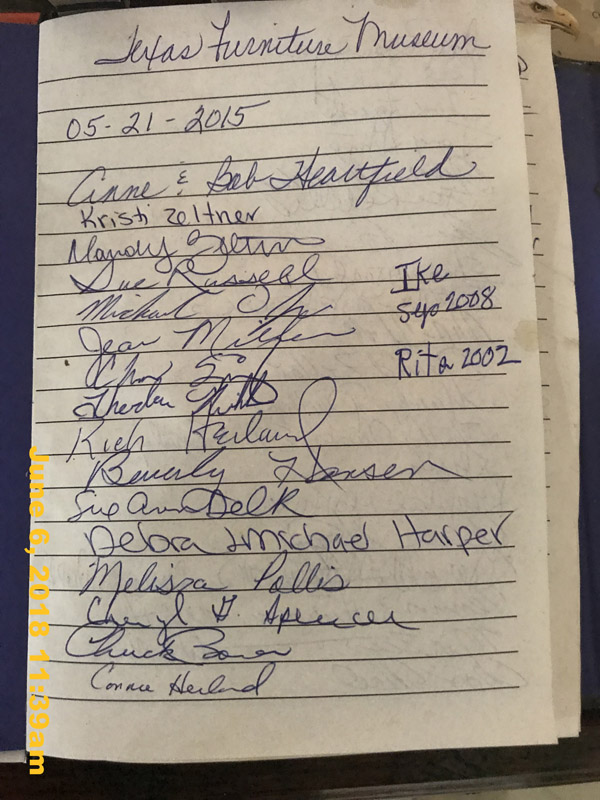 Texas Furniture Museum
05-21-2015
Anne & Bob Heartfield
Kristi Zeltner
Mandy
Sue Russell
Michael
Jean
Rich Herland
Beverly Hansen
Sue Ann Delk
Debra & Michael Harper
Melissa Pollis
Cheryl G. Spencer
Chuck
Connie Herland
Ike
Sep 2008
Rita 2002
June 6, 2018 11:39am